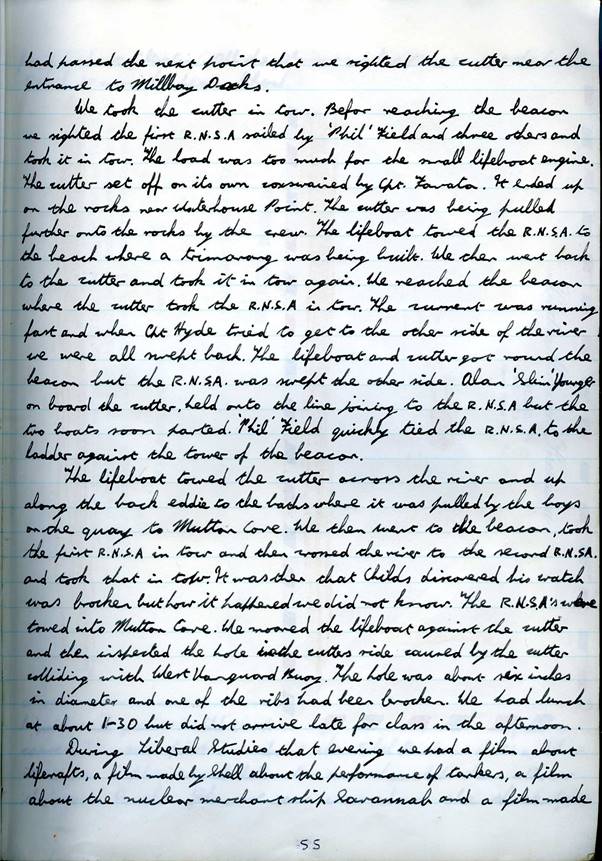 had passed the next point that we sighted the cutter near the
entrance to Millbay Docks.
We took the cutter in tow. Befor reaching the beacon
we sighted the first R.N.S.A sailed by 'Phil' Field and three others and
took it in tow. The load was too much for the small lifeboat engine.
The cutter set off on its own coxswained by Cpt. Zavata. It ended up
on the rocks near Waterhouse Point. The cutter was being pulled
further onto the rocks by the crew. The lifeboat towed the R.N.S.A. to
the beach where a trimarang was being built. We then went back
to the cutter and took it in tow again. We reached the beacon
where the cutter took the R.N.S.A in tow. The current was running
fast and when Cpt Hyde tried to get to the other side of the river
we were all swept back. The lifeboat and cutter got round the
beacon but the R.N.S.A. was swept the other side. Alan 'Slim' Younger
on board the cutter, held onto the line joining to the R.N.S.A but the
two boats soon parted. 'Phil' Field quickly tied the R.N.S.A. to the
ladder against the tower of the beacon.
The lifeboat towed the cutter across the river and up
along the back eddie to the baths where it was pulled by the boys
on the quay to Mutton Cove. We then went to the beacon, took
the first R.N.S.A in tow and then crossed the river to the second R.N.S.A.
and took that in tow. It was then that Childs discovered his watch
was brocken but how it happened we did not know. The R.N.S.A's were
towed into Mutton Cove. We moored the lifeboat against the cutter
and then inspected the hole in the cutters side caused by the cutter
colliding with West Vanguard Buoy. The hole was about six inches
in diameter and one of the ribs had been brocken. We had lunch
at about 1-30 but did not arrive late for class in the afternoon.
During Liberal Studies that evening we had a film about
liferafts, a film made by Shell about the performance of tankers, a film
about the nuclear merchant ship Savannah and a film made
55